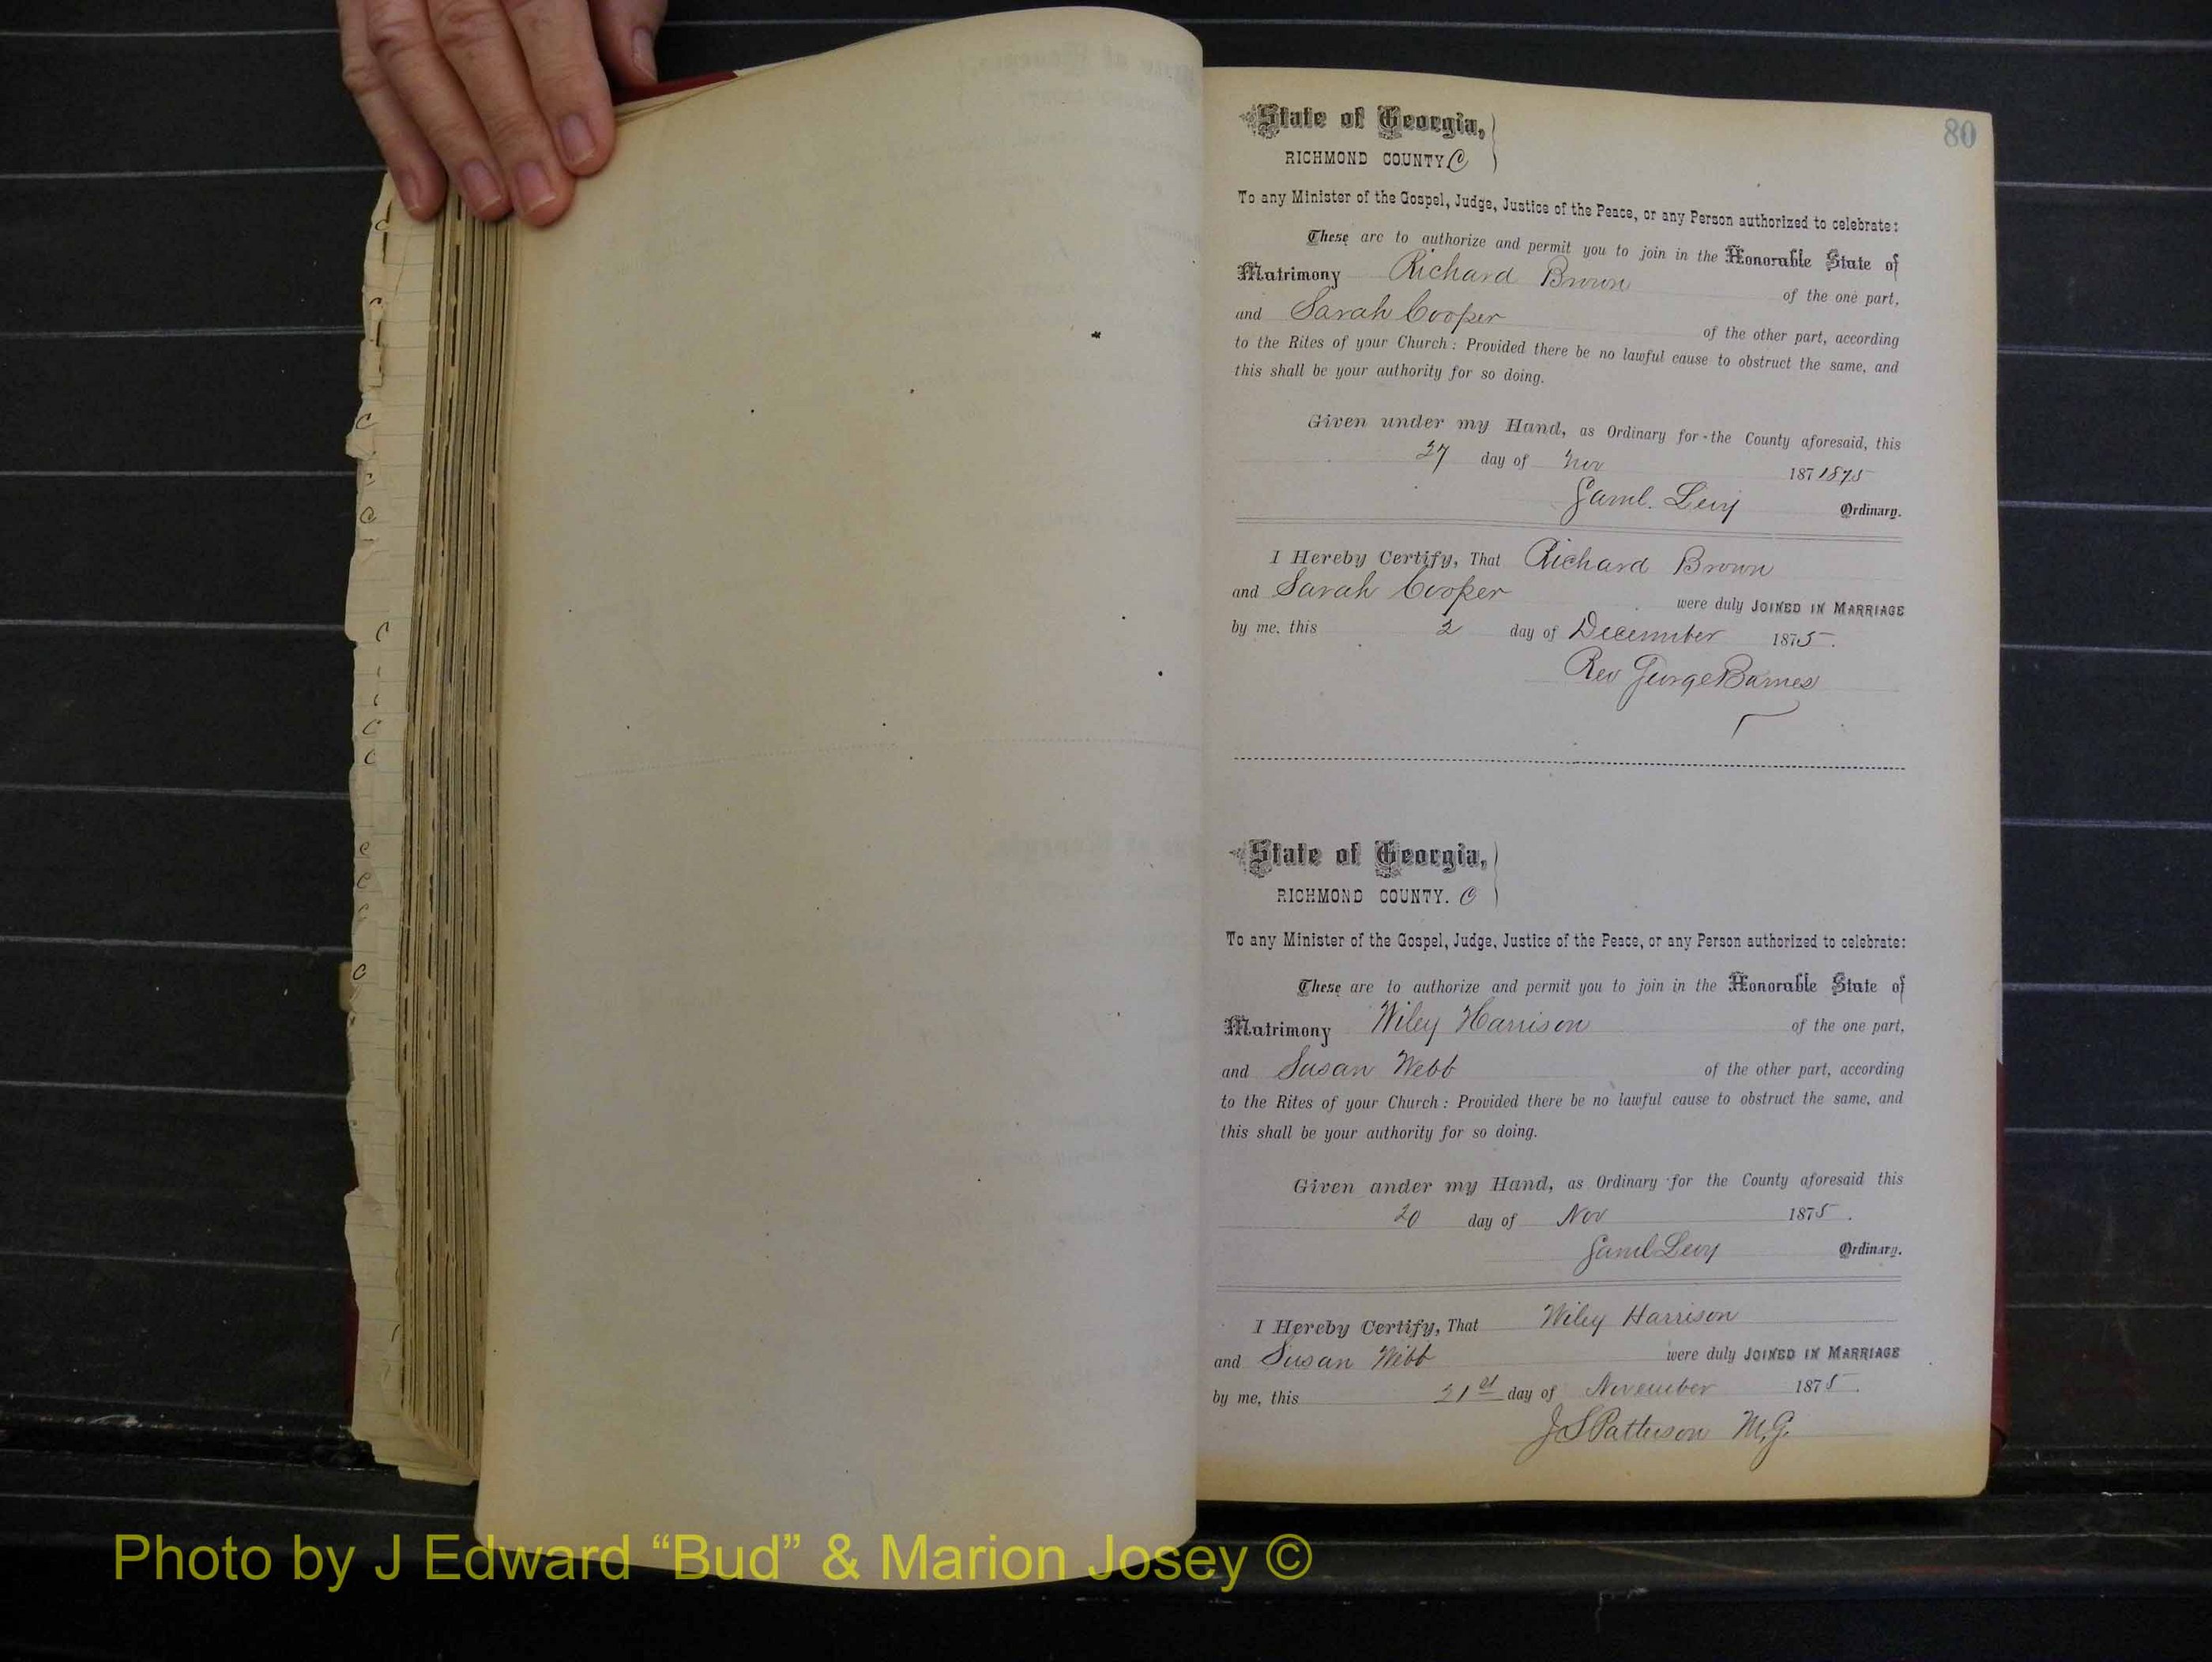 80
State of Georgia,
RICHMOND COUNTY C
To any Minister of the Gospel, Judge, Justice of the Peace, or any Person authorized to celebrate:
These are to authorize and permit you to join in the Honorable State of
Matrimony Richard Brown of the one part,
and Sarah Cooper of the other part, according
to the Rites of your Church: Provided there be no lawful cause to obstruct the same, and
this shall be your authority for so doing.
Given under my Hand, as Ordinary for the County aforesaid, this
27 day of Nov 187 1875
Saml. Levy Ordinary.
I Hereby Certify, That Richard Brown
and Sarah Cooper were duly JOINED IN MARRIAGE
by me, this 2 day of December 1875.
Rev George Barnes
State of Georgia,
RICHMOND COUNTY. C
To any Minister of the Gospel, Judge, Justice of the Peace, or any Person authorized to celebrate:
These are to authorize and permit you to join in the Honorable State of
Matrimony Wiley Harrison of the one part,
and Susan Webb of the other part, according
to the Rites of your Church: Provided there be no lawful cause to obstruct the same, and
this shall be your authority for so doing.
Given under my Hand, as Ordinary for the County aforesaid this
20 day of Nov 1875.
Saml Levy Ordinary.
I Hereby Certify, That Wiley Harrison
and Susan Webb were duly JOINED IN MARRIAGE
by me, this 21st day of November 1875.
J S Patterson M.G.
Photo by J Edward “Bud” & Marion Josey ©